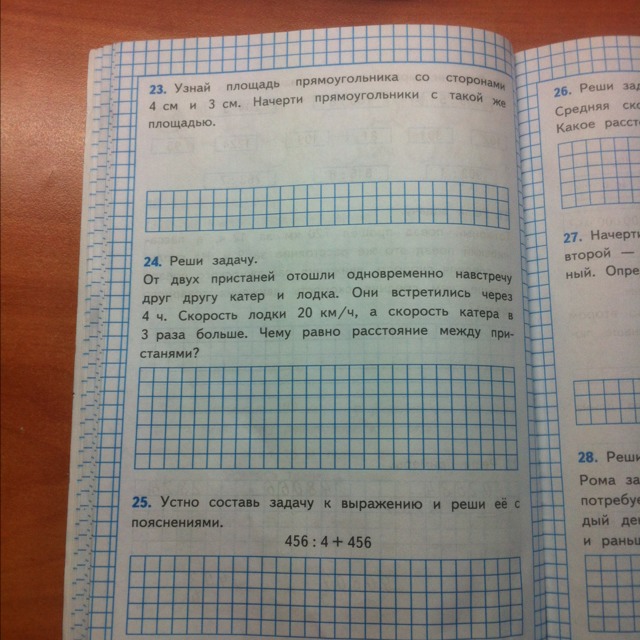 23. Узнай площадь прямоугольника со сторонами
4 см и 3 см. Начерти прямоугольники с такой же
площадью.
24. Реши задачу.
От двух пристаней отошли одновременно навстречу
друг другу катер и лодка. Они встретились через
4 ч. Скорость лодки 20 км/ч, а скорость катера в
3 раза больше. Чему равно расстояние между при-
станями?
25. Устно составь задачу к выражению и реши её с
пояснениями.
456 : 4 + 456
26. Реши
Средняя
Какое
27.
второй —
ный.
28. Реши
Рома
дый
и